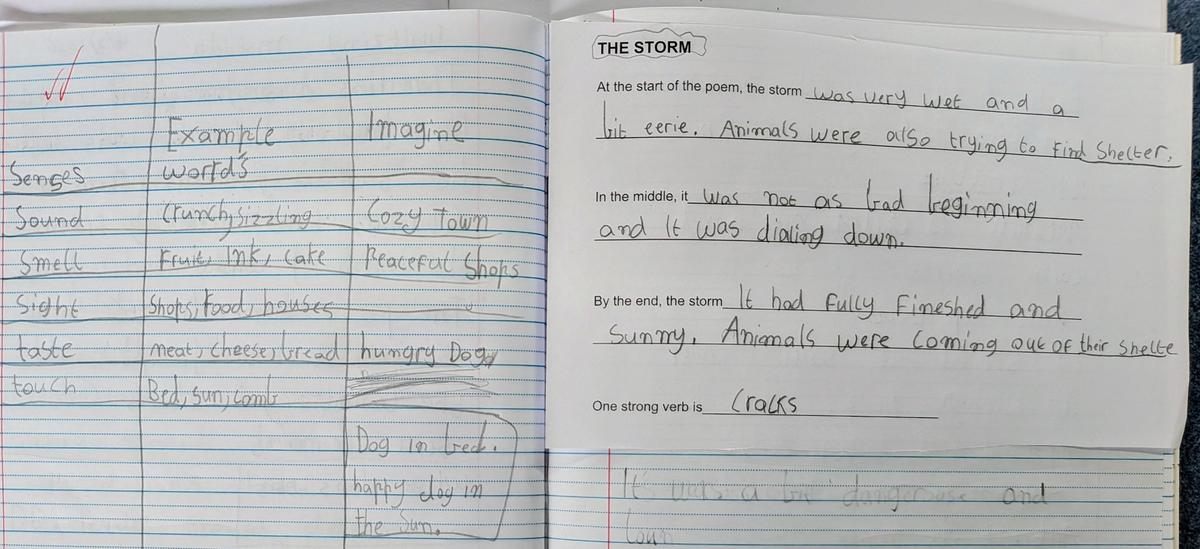 Example Imagine
Senses worrd's
Sound Crunch, sizzling Cozy Town
Smell Fruit, Ink, Cake Peaceful Shops
Sight Shops, Food, houses
taste meat, cheese, bread hungry Dog
touch Bed, sun, comb
Dog in bed.
happy dog in
the Sun.
THE STORM
At the start of the poem, the storm was very wet and a
bit eerie. Animals were also trying to find Shelter.
In the middle, it was not as bad beginning
and It was dialing down.
By the end, the storm It had Fully Fineshed and
Sunny. Animals were Coming out of their shelte
One strong verb is Cracks
It was a bit and